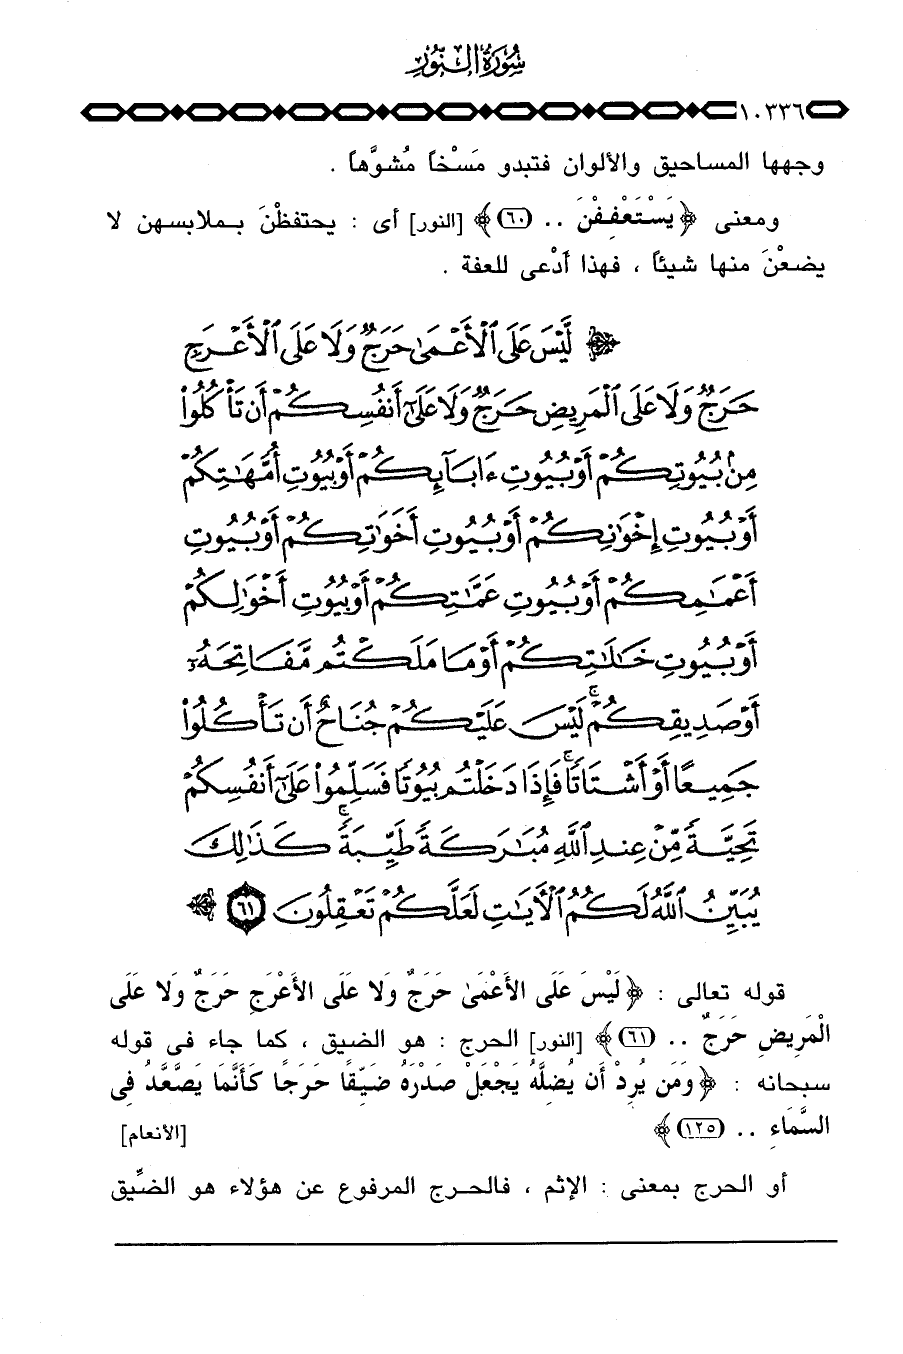 سُورَةُ النُّورِ
١٠٣٣٦
وجهها المساحيق والألوان فتبدو مَسْخاً مُشوَّهاً .
ومعنى ﴿ يَسْتَعْفِفْنَ .. (٦٠) ﴾ [النور] أى : يحتفظْنَ بملابسهن لا
يضعْنَ منها شيئاً ، فهذا أدْعى للعفة .
﴿ لَّيْسَ عَلَى ٱلْأَعْمَىٰ حَرَجٌ وَلَا عَلَى ٱلْأَعْرَجِ
حَرَجٌ وَلَا عَلَى ٱلْمَرِيضِ حَرَجٌ وَلَا عَلَىٰٓ أَنفُسِكُمْ أَن تَأْكُلُوا۟
مِنۢ بُيُوتِكُمْ أَوْ بُيُوتِ ءَابَآئِكُمْ أَوْ بُيُوتِ أُمَّهَٰتِكُمْ
أَوْ بُيُوتِ إِخْوَٰنِكُمْ أَوْ بُيُوتِ أَخَوَٰتِكُمْ أَوْ بُيُوتِ
أَعْمَٰمِكُمْ أَوْ بُيُوتِ عَمَّٰتِكُمْ أَوْ بُيُوتِ أَخْوَٰلِكُمْ
أَوْ بُيُوتِ خَٰلَٰتِكُمْ أَوْ مَا مَلَكْتُم مَّفَاتِحَهُۥٓ
أَوْ صَدِيقِكُمْ ۚ لَيْسَ عَلَيْكُمْ جُنَاحٌ أَن تَأْكُلُوا۟
جَمِيعًا أَوْ أَشْتَاتًا ۚ فَإِذَا دَخَلْتُم بُيُوتًا فَسَلِّمُوا۟ عَلَىٰٓ أَنفُسِكُمْ
تَحِيَّةً مِّنْ عِندِ ٱللَّهِ مُبَٰرَكَةً طَيِّبَةً ۚ كَذَٰلِكَ
يُبَيِّنُ ٱللَّهُ لَكُمُ ٱلْءَايَٰتِ لَعَلَّكُمْ تَعْقِلُونَ (٦١) ﴾
قوله تعالى : ﴿ لَيْسَ عَلَى الأَعْمَىٰ حَرَجٌ وَلا عَلَى الأَعْرَجِ حَرَجٌ وَلا عَلَى
الْمَرِيضِ حَرَجٌ .. (٦١) ﴾ [النور] الحرج : هو الضيق ، كما جاء فى قوله
سبحانه : ﴿ وَمَن يُرِدْ أَن يُضِلَّهُ يَجْعَلْ صَدْرَهُ ضَيِّقًا حَرَجًا كَأَنَّمَا يَصَّعَّدُ فِى
السَّمَاءِ .. (١٢٥) ﴾ [الأنعام]
أو الحرج بمعنى : الإثم ، فالحرج المرفوع عن هؤلاء هو الضِّيق